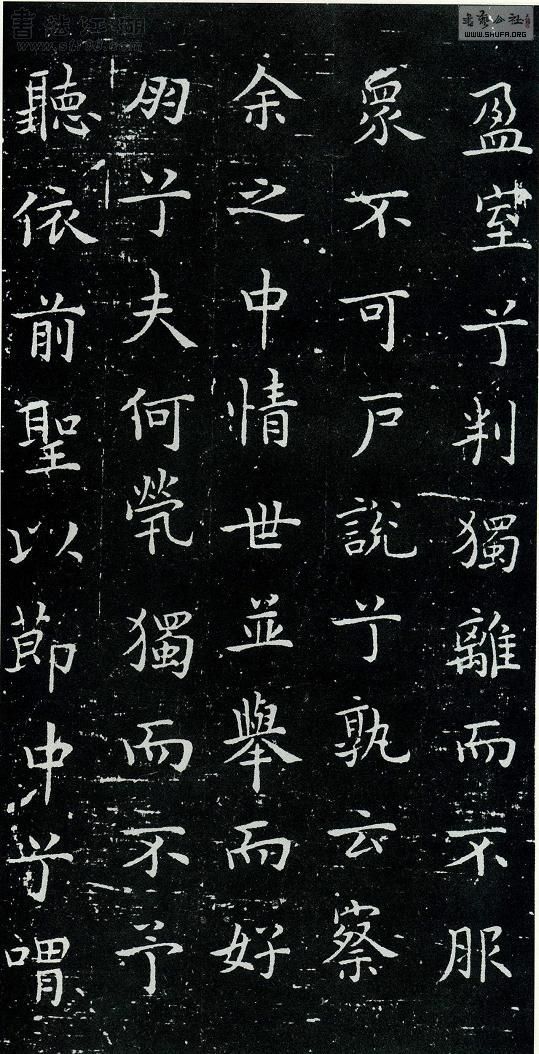 盈室兮判獨離而不服
眾不可戶說兮孰云察
余之中情世並舉而好
朋兮夫何煢獨而不予
聽依前聖以節中兮喟
書法江湖
WWW.SHUFA.ORG